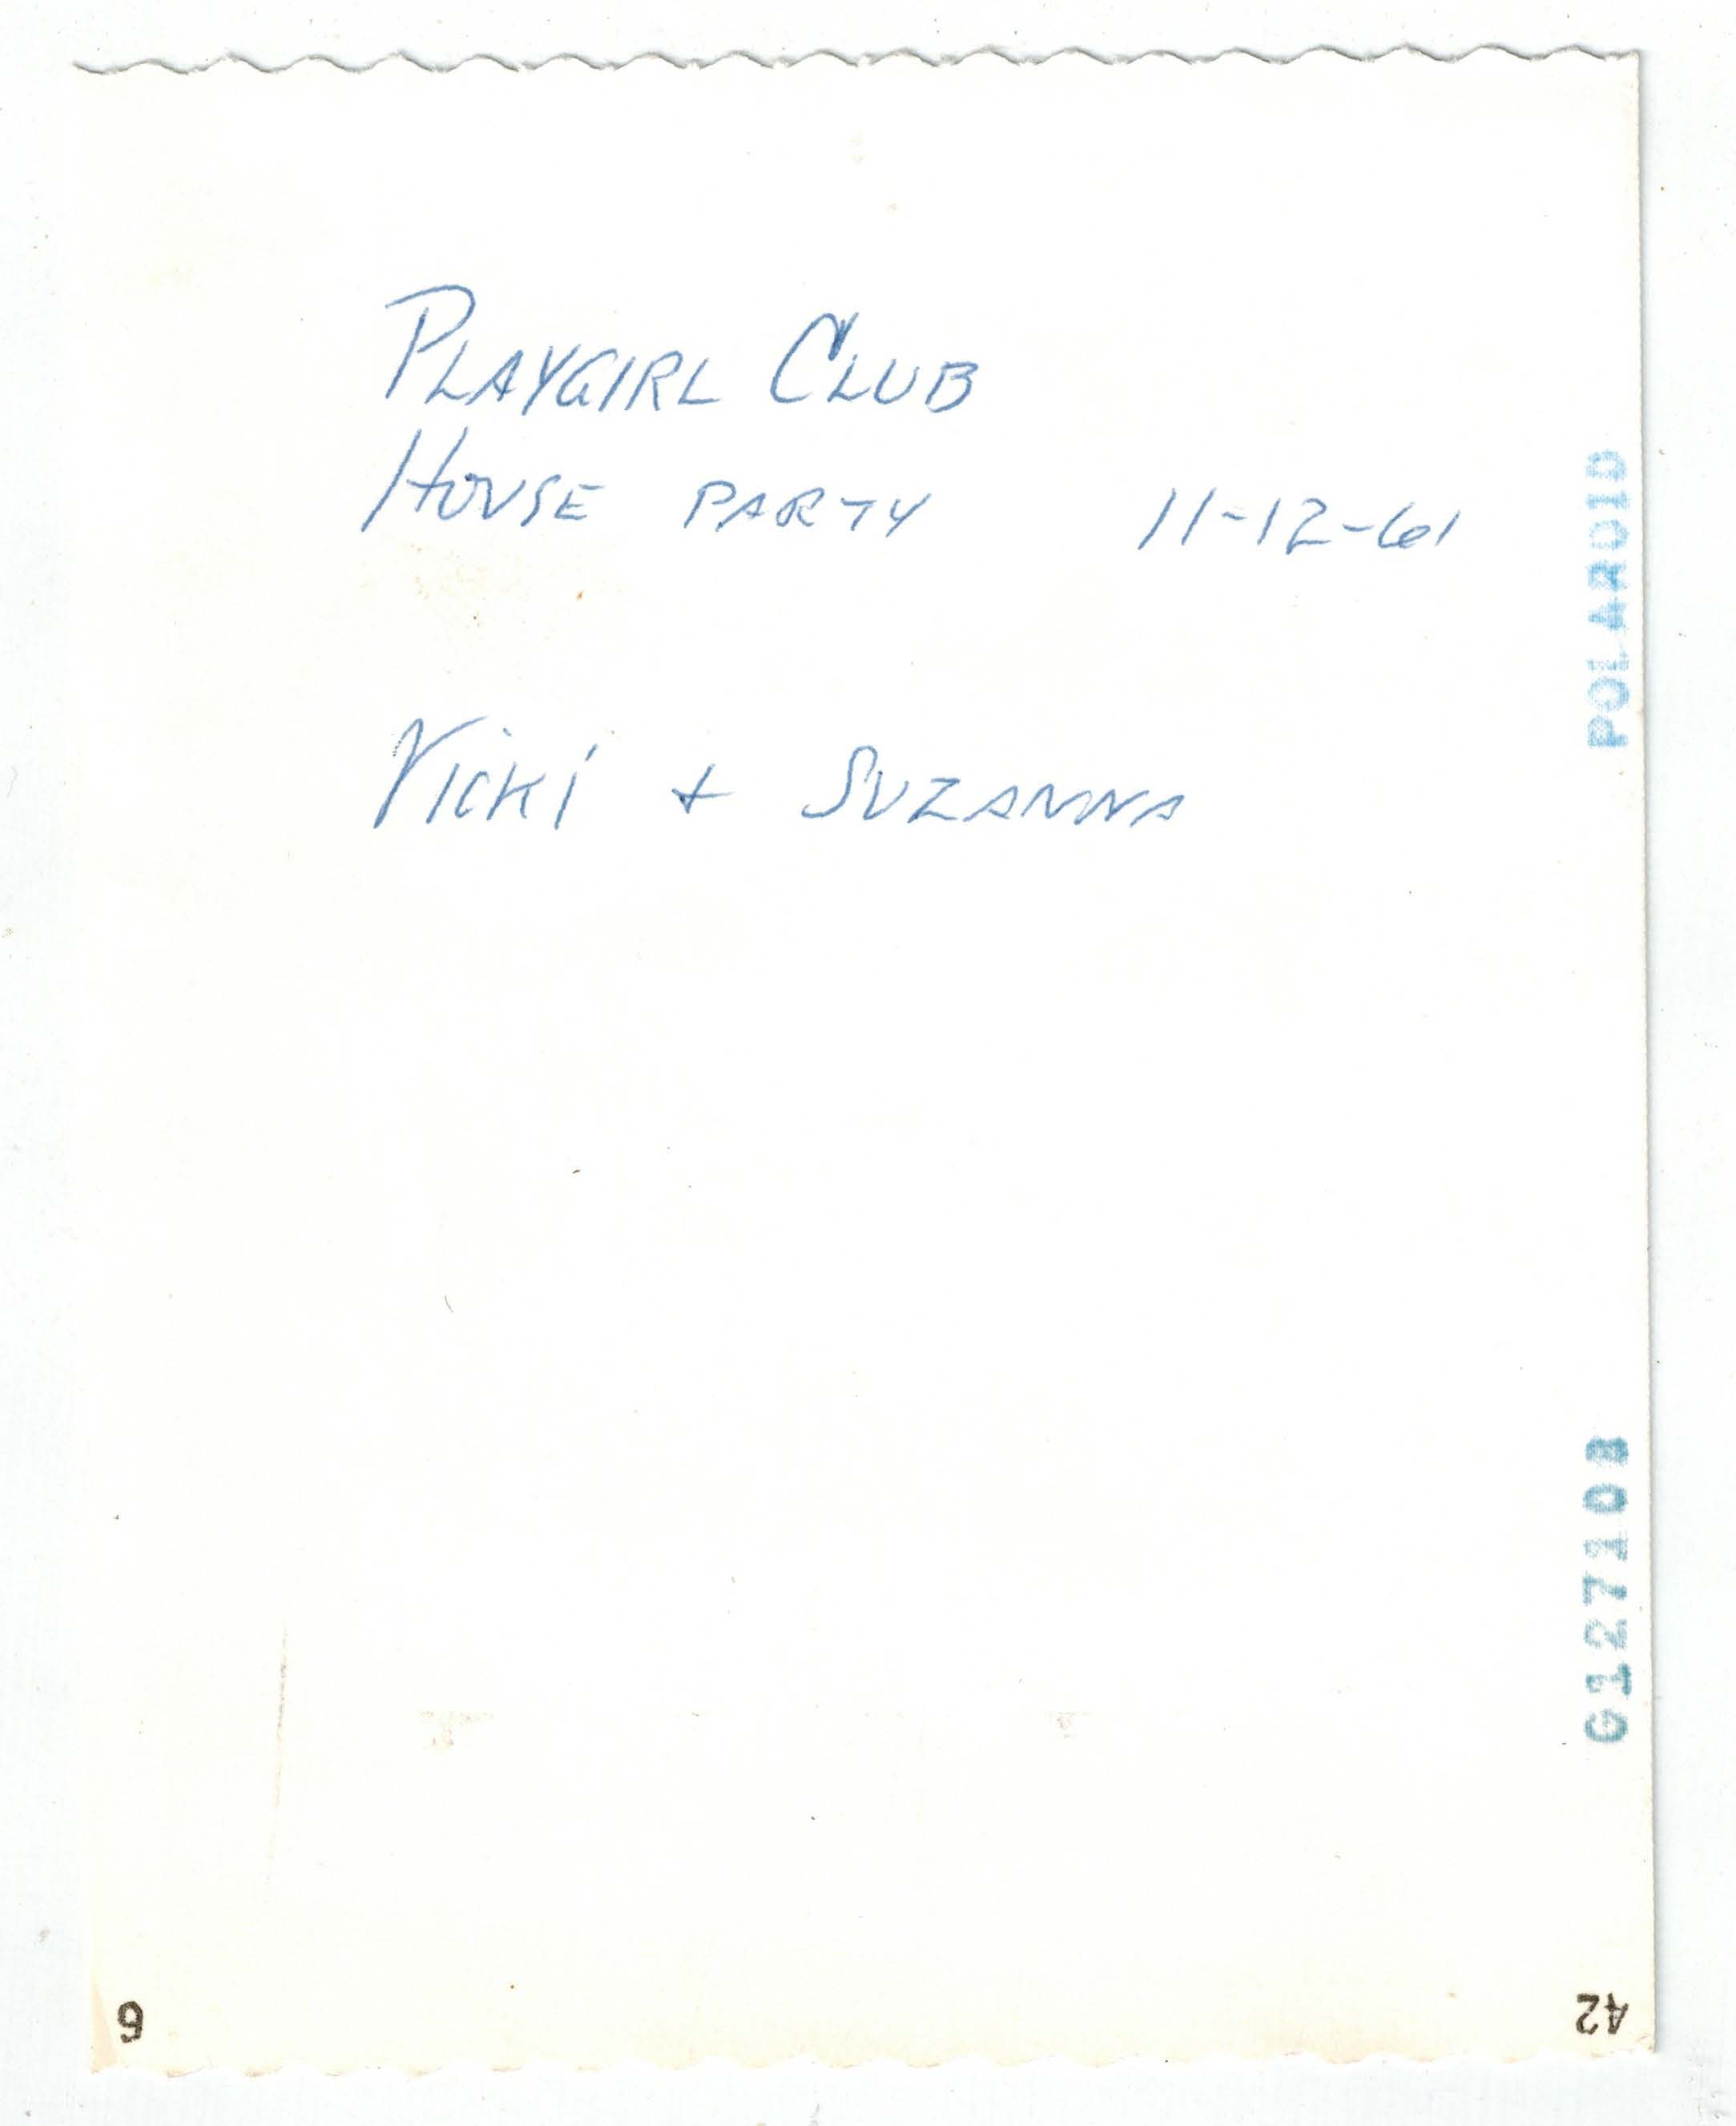 PLAYGIRL CLUB
HOUSE PARTY 11-12-61
VICKI + SUZANNA
POLAROID
G127108
6
42